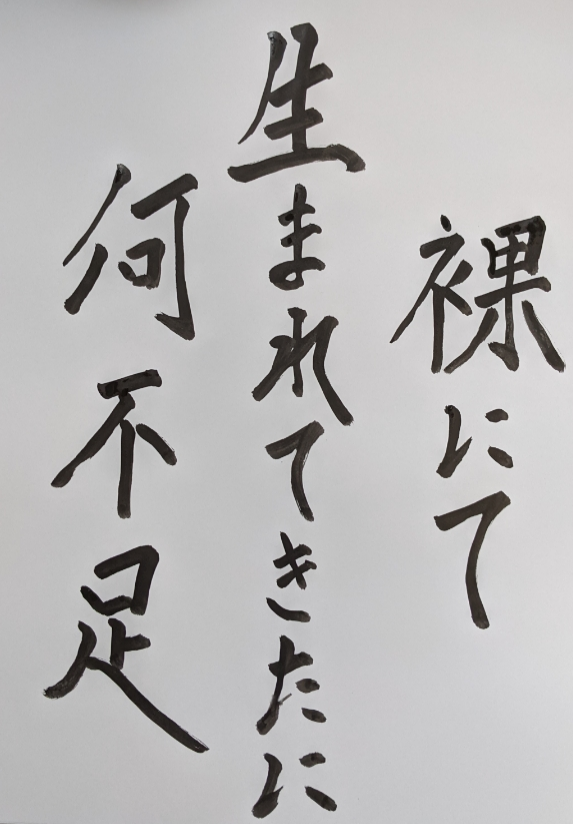 裸にて
生まれてきたに
何不足